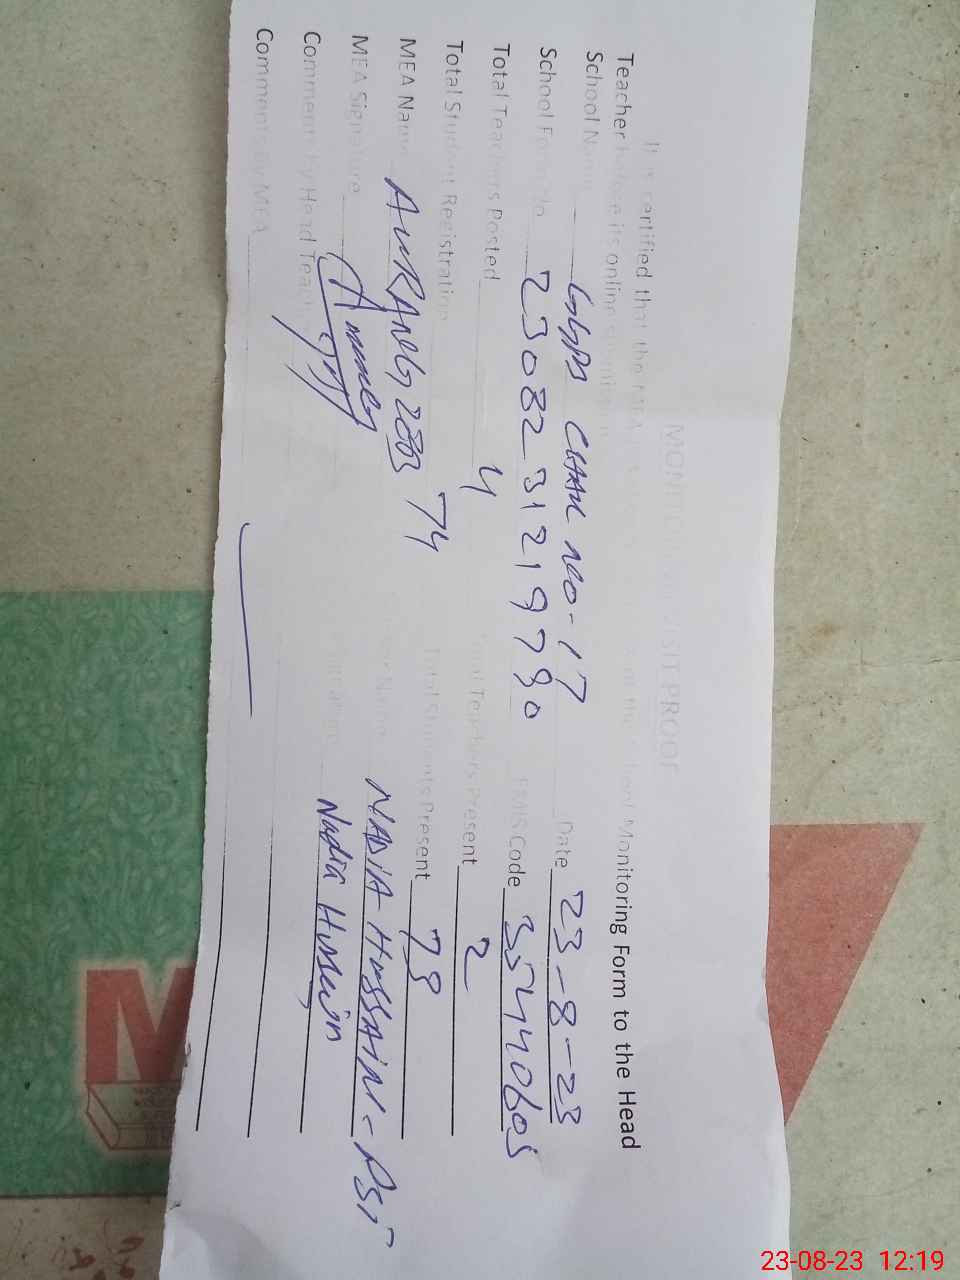 MONITORING VISIT PROOF
It is certified that the MEA Monitoring Form to the Head
Teacher before its online submission
School Name GGPS CHAK NO-17 Date 23-8-23
School Form No 2308231219790 EMIS Code 35440605
Total Teachers Posted 4 Total Teachers Present 2
Total Student Registration 74 Total Students Present 73
MEA Name AURANG ZEB Name NADIA HUSSAIN - PST
MEA Signature Nadia Hussain
Comments by Head Teacher
Comments by MEA
23-08-23 12:19